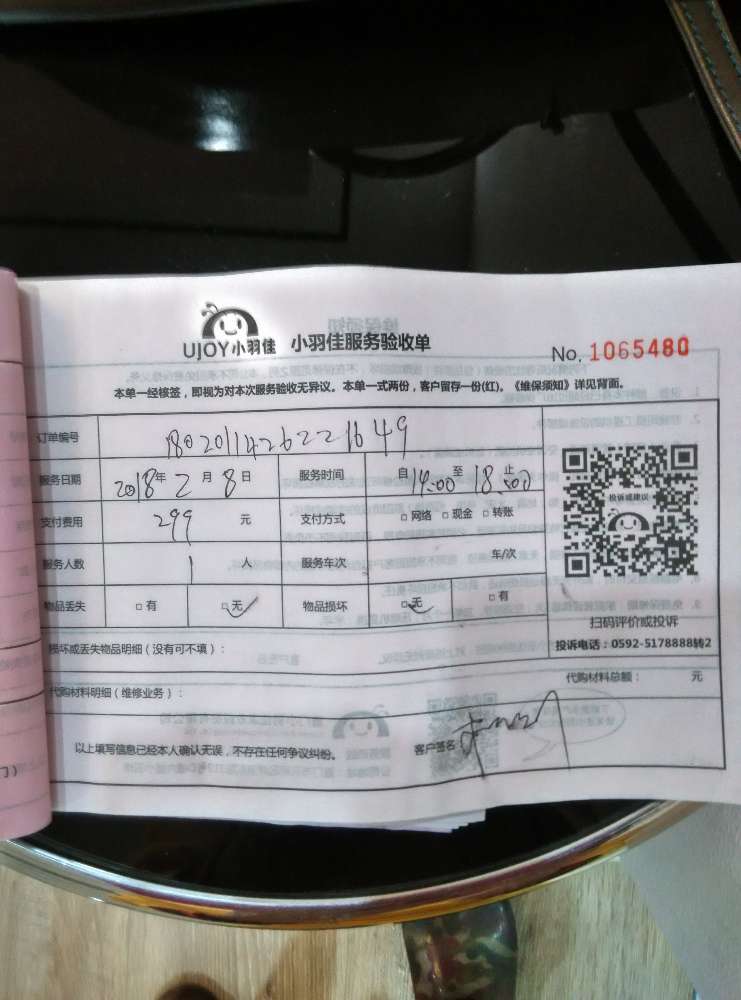 UJOY小羽佳 小羽佳服务验收单
No. 1065480
本单一经核签，即视为对本次服务验收无异议。本单一式两份，客户留存一份(红)。《维保须知》详见背面。
订单编号 1802011426221649
服务日期 2018年2月8日 服务时间 自14:00至18:00止
投诉或建议
支付费用 299 元 支付方式 □网络 □现金 □转账
服务人数 1 人 服务车次 车/次
物品丢失 □有 □无✓ 物品损坏 □无✓ □有
扫码评价或投诉
投诉电话：0592-5178888转2
损坏或丢失物品明细（没有可不填）：
代购材料明细（维修业务）： 代购材料总额： 元
以上填写信息已经本人确认无误，不存在任何争议纠纷。 客户签名：